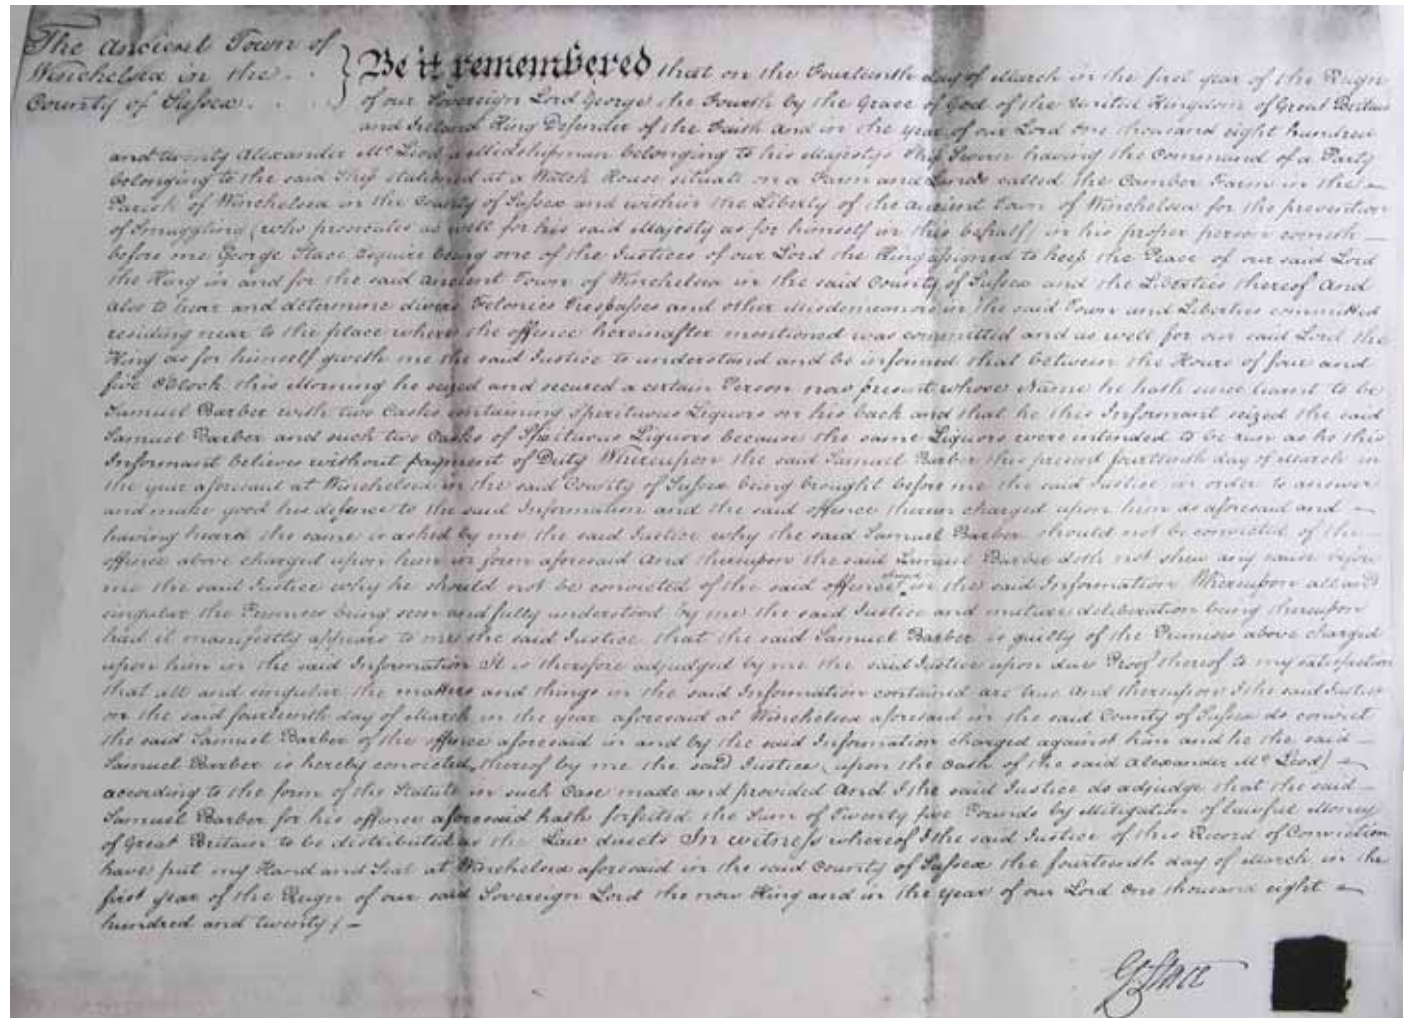 The Ancient Town of
Winchelsea in the . .
County of Sussex . . . .
Be it remembered that on the Fourteenth day of March in the first year of the Reign
of our Sovereign Lord George the Fourth by the Grace of God of the United Kingdom of Great Britain
and Ireland King Defender of the Faith and in the year of our Lord One thousand eight hundred
and twenty Alexander Mc Leod a Midshipman belonging to his Majestys Ship Severn having the Command of a Party
belonging to the said Ship stationed at a Watch House situate on a Farm and Lands called the Camber Farm in the
Parish of Winchelsea in the County of Sussex and within the Liberty of the Ancient Town of Winchelsea for the prevention
of Smuggling (who prosecutes as well for his said Majesty as for himself in this behalf) in his proper person cometh
before me George Stace Esquire being one of the Justices of our Lord the King assigned to keep the Peace of our said Lord
the King in and for the said Ancient Town of Winchelsea in the said County of Sussex and the Liberties thereof And
also to hear and determine divers Felonies Trespasses and other Misdemeanors in the said Town and Liberties committed
residing near to the place where the offence hereinafter mentioned was committed and as well for our said Lord the
King as for himself giveth me the said Justice to understand and be informed that between the Hours of four and
five oClock this Morning he seized and secured a certain Person now present whose Name he hath since learnt to be
Samuel Barber with two Casks containing Spirituous Liquors on his back and that he this Informant seized the said
Samuel Barber and such two Casks of Spirituous Liquors because the same Liquors were intended to be run as he this
Informant believes without payment of Duty Whereupon the said Samuel Barber this present fourteenth day of March in
the year aforesaid at Winchelsea in the said County of Sussex being brought before me the said Justice in order to answer
and make good his defence to the said Information and the said offence therein charged upon him as aforesaid and
having heard the same is asked by me the said Justice why the said Samuel Barber should not be convicted of the
offence above charged upon him in form aforesaid And thereupon the said Samuel Barber doth not shew any cause before
me the said Justice why he should not be convicted of the said offence in the said Information Whereupon all and
singular the Premises being seen and fully understood by me the said Justice and mature deliberation being thereupon
had it manifestly appears to me the said Justice that the said Samuel Barber is guilty of the Premises above charged
upon him in the said Information It is therefore adjudged by me the said Justice upon due Proof thereof to my satisfaction
that all and singular the matters and things in the said Information contained are true And thereupon I the said Justice
on the said fourteenth day of March in the year aforesaid at Winchelsea aforesaid in the said County of Sussex do convict
the said Samuel Barber of the offence aforesaid in and by the said Information charged against him and he the said
Samuel Barber is hereby convicted thereof by me the said Justice (upon the Oath of the said Alexander Mc Leod)
according to the form of the Statute in such Case made and provided And I the said Justice do adjudge that the said
Samuel Barber for his offence aforesaid hath forfeited the Sum of Twenty five Pounds by Mitigation of lawful Money
of Great Britain to be distributed as the Law directs In witness whereof I the said Justice of this Record of Conviction
have put my Hand and Seal at Winchelsea aforesaid in the said County of Sussex the fourteenth day of March in the
first year of the Reign of our said Sovereign Lord the now King and in the Year of our Lord One thousand eight
hundred and twenty
G Stace